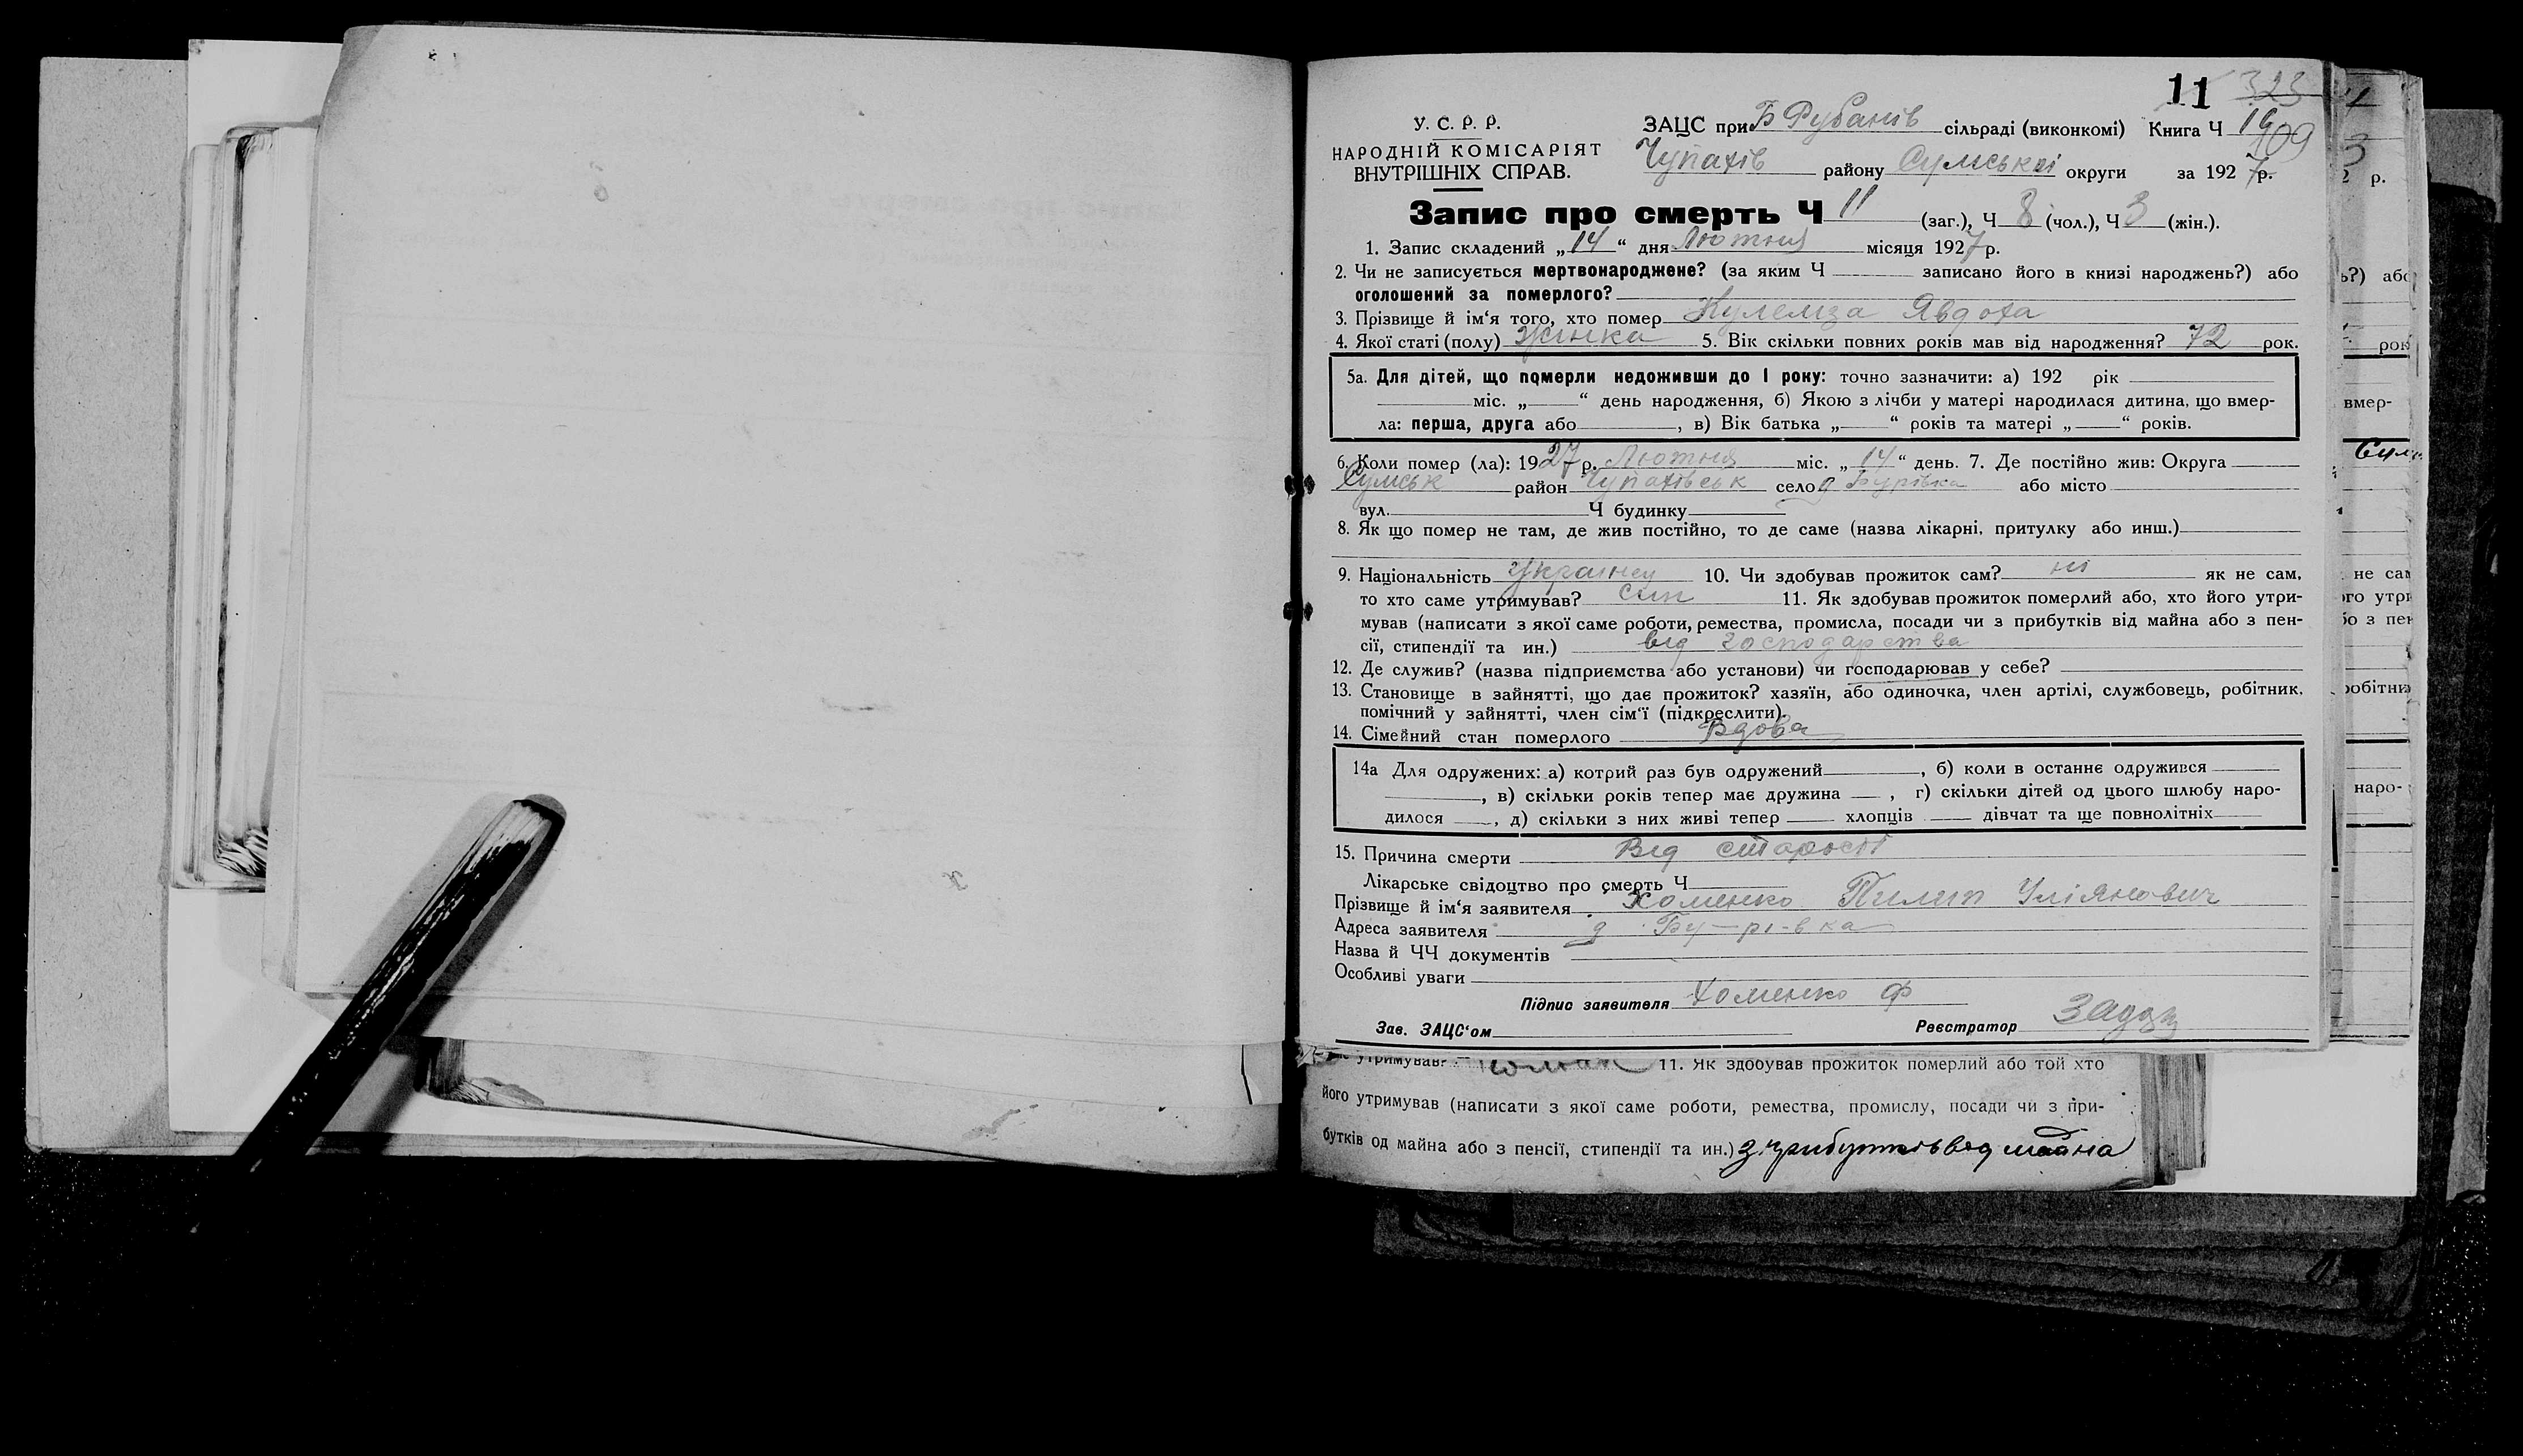 11 323
У. С. Р. Р.
НАРОДНІЙ КОМІСАРІЯТ
ВНУТРІШНІХ СПРАВ.
ЗАЦС при Б Рубанів сільраді (виконкомі) Книга Ч 16
109
Чупахів району Сумської округи за 1927 р.
Запис про смерть Ч 11 (заг.), Ч 8 (чол.), Ч 3 (жін.).
1. Запис складений „14“ дня Лютня місяця 1927 р.
2. Чи не записується мертвонароджене? (за яким Ч записано його в книзі народжень?) або
оголошений за померлого?
3. Прізвище й ім‘я того, хто помер Кулемза Явдоха
4. Якої статі (полу) жінка 5. Вік скільки повних років мав від народження? 72 рок.
5а. Для дітей, що померли недоживши до 1 року: точно зазначити: а) 192 рік
міс. „ “ день народження, б) Якою з лічби у матері народилася дитина, що вмер-
ла: перша, друга або , в) Вік батька „ “ років та матері „ “ років.
6. Коли помер (ла): 1927 р. Лютня міс. „14“ день. 7. Де постійно жив: Округа
Сумськ район Чупахівськ село д Бурівка або місто
вул. Ч будинку
8. Як що помер не там, де жив постійно, то де саме (назва лікарні, притулку або инш.)
9. Національність 10. Чи здобував прожиток сам? ні як не сам,
то хто саме утримував? син 11. Як здобував прожиток померлий або, хто його утри-
мував (написати з якої саме роботи, ремества, промисла, посади чи з прибутків від майна або з пен-
сії, стипендії та ин.) від господарства
12. Де служив? (назва підприємства або установи) чи господарював у себе?
13. Становище в зайнятті, що дає прожиток? хазяїн, або одиночка, член артілі, службовець, робітник,
помічний у зайнятті, член сім‘ї (підкреслити).
14. Сімейний стан померлого Вдова
14а Для одружених: а) котрий раз був одружений , б) коли в останнє одружився
, в) скільки років тепер має дружина , г) скільки дітей од цього шлюбу наро-
дилося , д) скільки з них живі тепер хлопців дівчат та ще повнолітніх
15. Причина смерти Від старості
Лікарське свідоцтво про смерть Ч
Прізвище й ім‘я заявителя Хоменко Пилип Уліянович
Адреса заявителя д Бу-рі-вка
Назва й ЧЧ документів
Особливі уваги
Підпис заявителя Хоменко Ф
Зав. ЗАЦС‘ом Реєстратор
утримував? 11. Як здобував прожиток померлий або той хто
його утримував (написати з якої саме роботи, ремества, промислу, посади чи з при-
бутків од майна або з пенсії, стипендії та ин.) з прибутків від майна